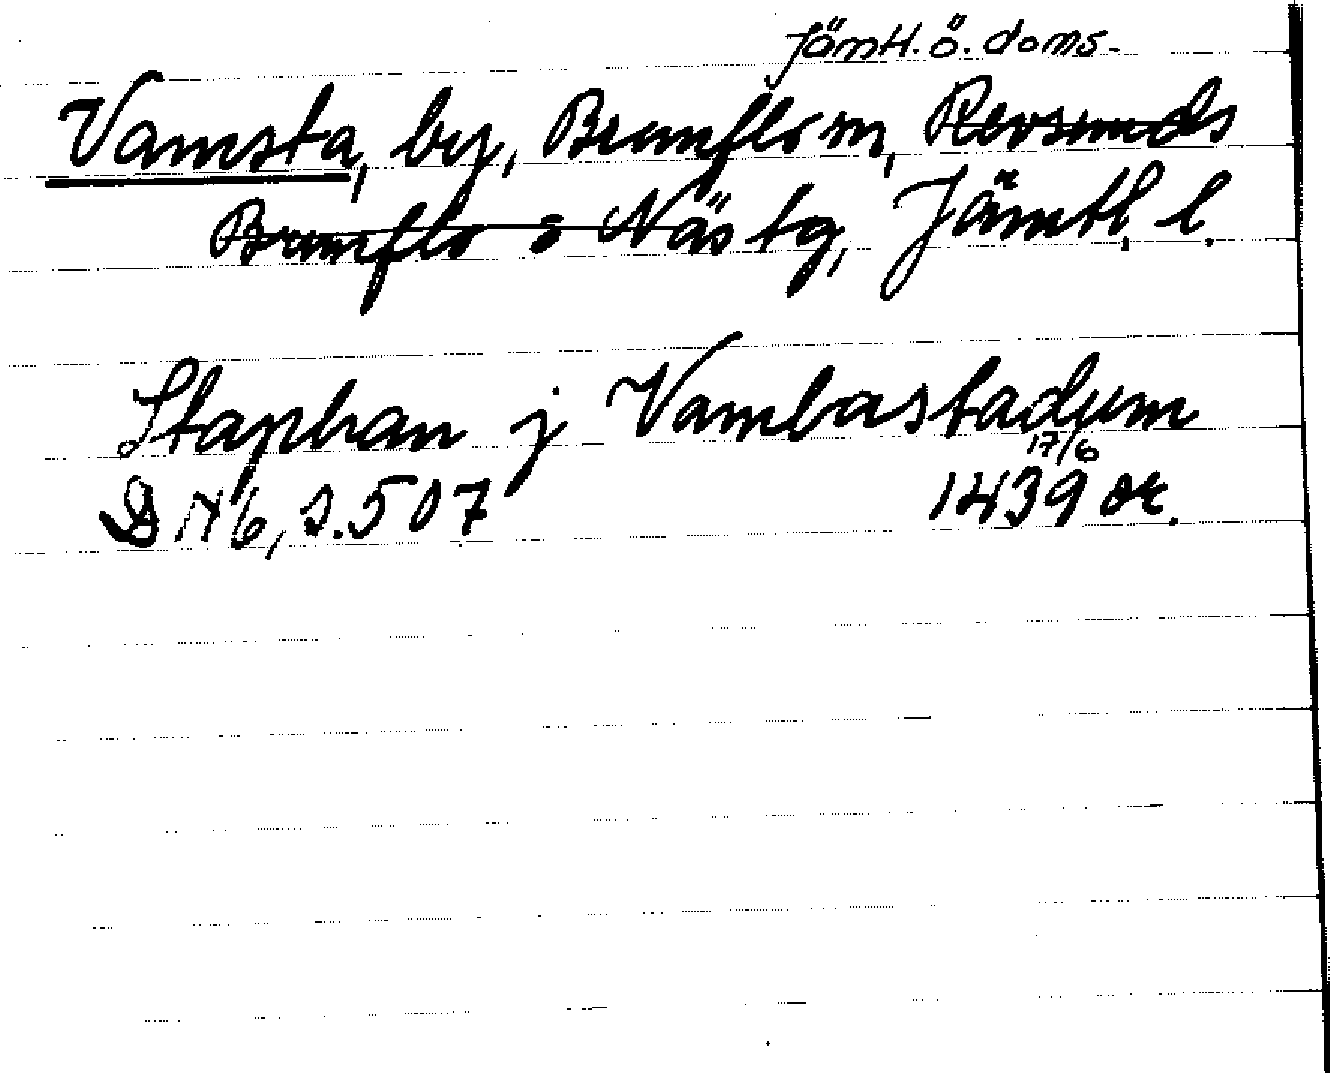 Jämtl. ö. doms.
Vamsta, by, Brunflo sn, Revsunds
Brunflo o Näs tg, Jämtl. l.
Staphan j Vambastadum
17/6
DN 16, s. 507 1439 or.